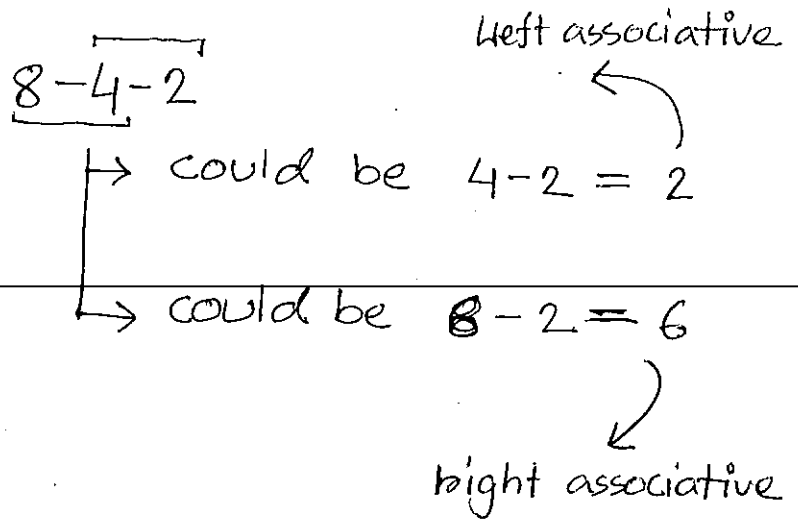 Left associative
8-4-2
→ could be 4-2 = 2
→ could be 8-2 = 6
right associative